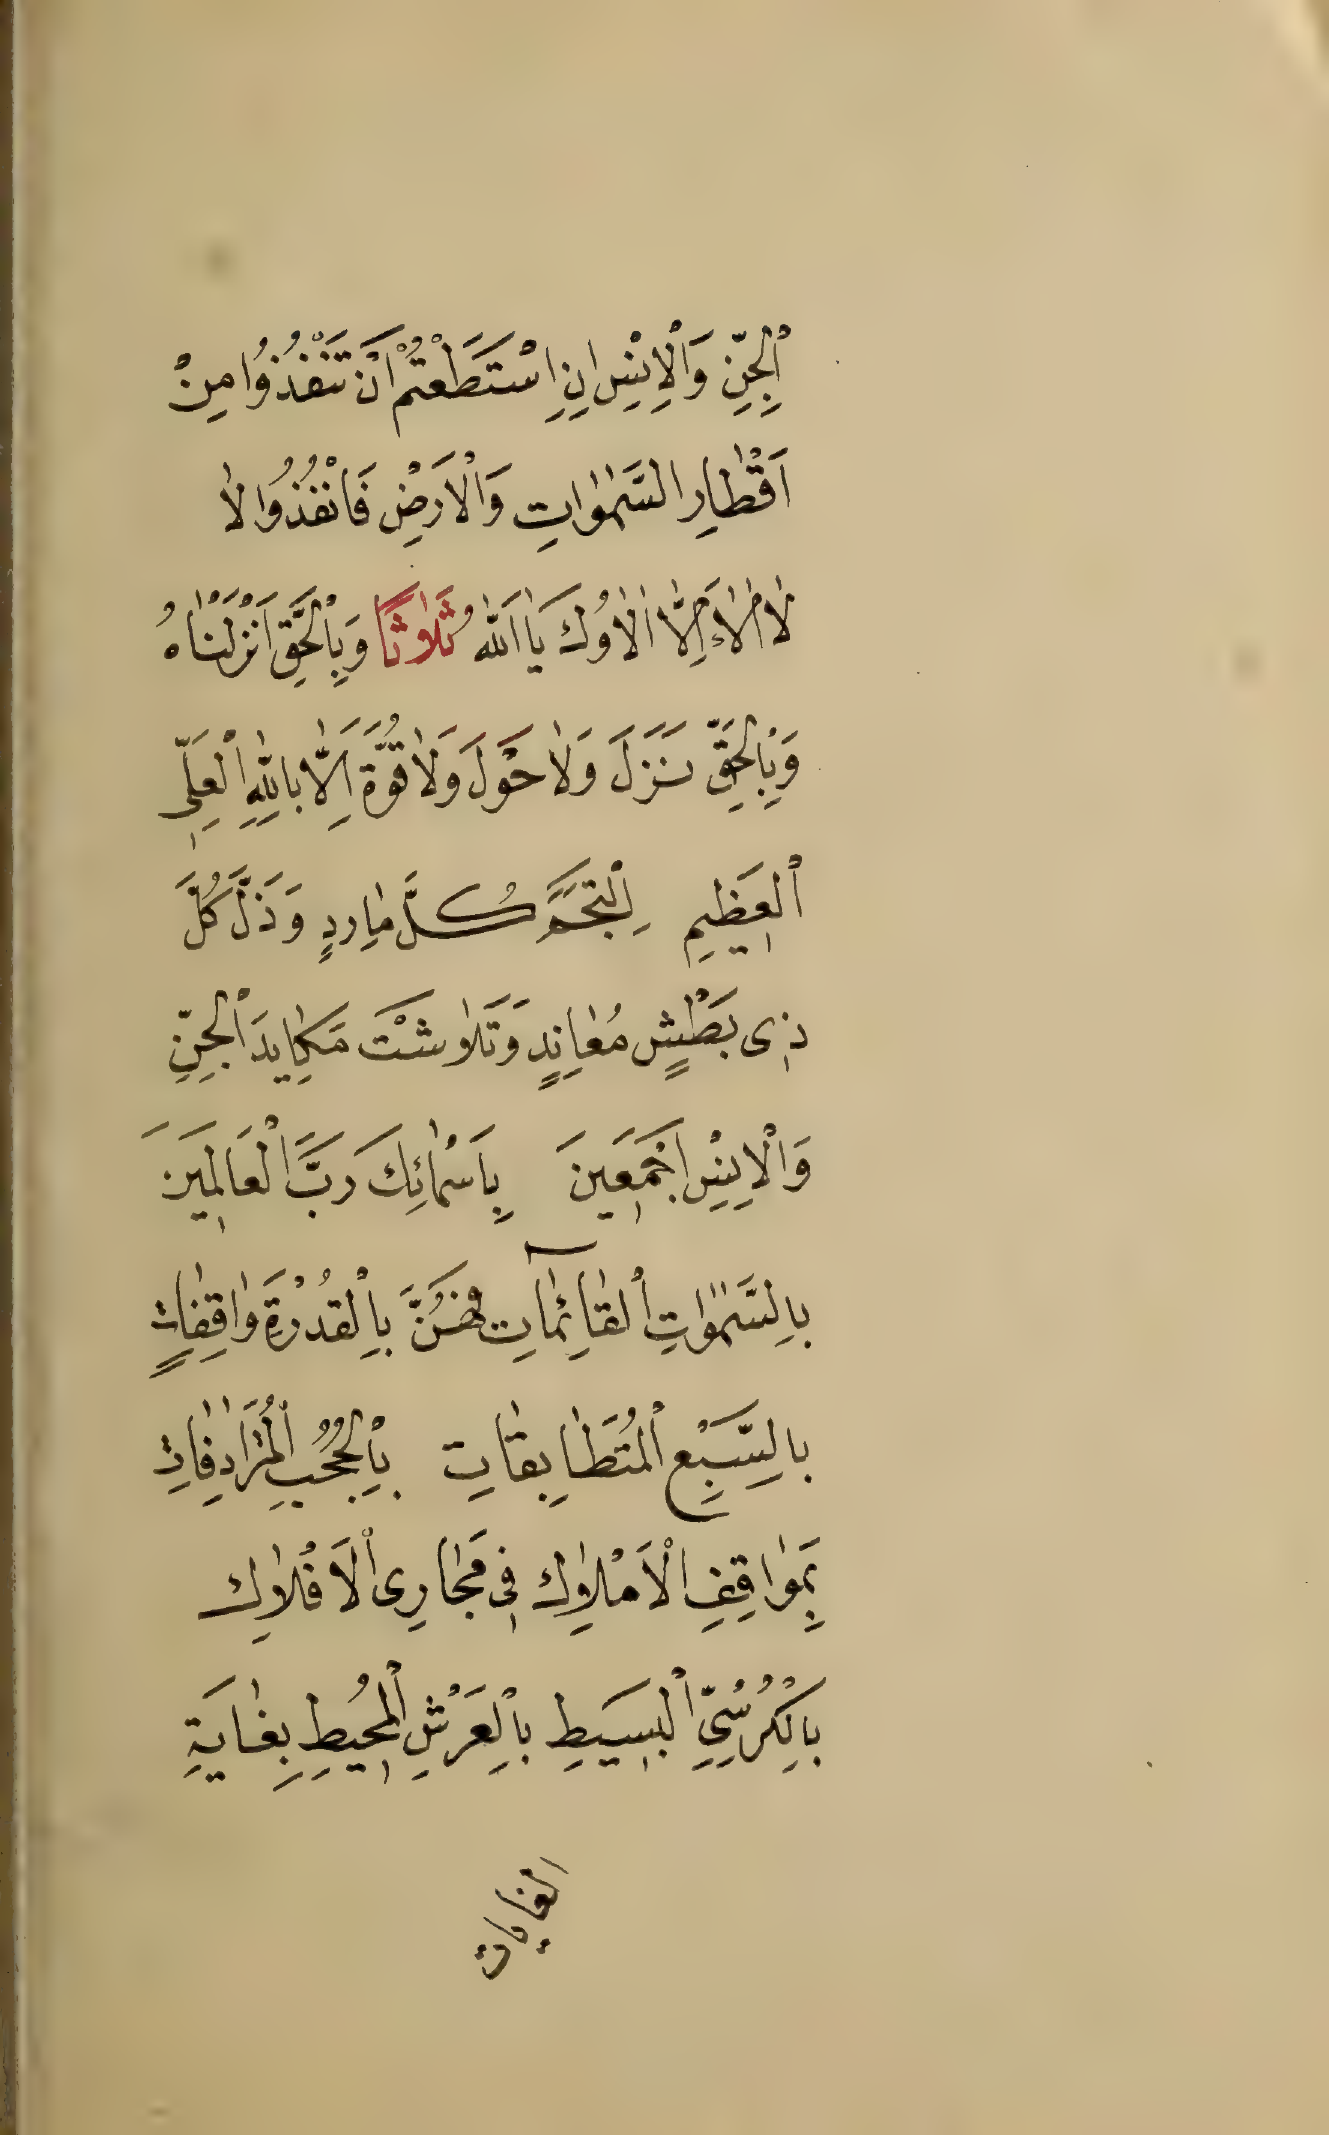 اَلْجِنِّ وَالْاِنْسِ اِنِ اسْتَطَعْتُمْ اَنْ تَنْفُذُوا مِنْ
اَقْطَارِ السَّمٰوٰاتِ وَالْاَرْضِ فَانْفُذُوا لاٰ
لاٰ اِلاّٰ اٰلاٰؤُكَ يٰا اَللّٰهُ ثَلاٰثًا وَبِالْحَقِّ اَنْزَلْنٰاهُ
وَبِالْحَقِّ نَزَلَ وَلاٰ حَوْلَ وَلاٰ قُوَّةَ اِلاّٰ بِاللّٰهِ الْعَلِىِّ
الْعَظِيمِ كُلَّ مٰارِدٍ وَذَلَّ كُلُّ
ذِى بَطْشٍ مُعٰانِدٍ وَتَلاٰشَتْ مَكٰايِدَ الْجِنِّ
وَالْاِنْسِ اَجْمَعِينَ بِاَسْمٰائِكَ رَبَّ الْعَالَمِينَ
بِالسَّمٰوٰاتِ الْقٰائِمٰاتِ فَهُنَّ بِالْقُدْرَةِ وٰاقِفٰاتٍ
بِالسَّبْعِ الْمُتَطٰابِقٰاتِ بِالْحُجُبِ الْمُتَرَادِفٰاتِ
بِمَوٰاقِفِ الْاَمْلاٰكِ فِى مَجٰارِى الْاَفْلاٰكِ
بِالْكُرْسِىِّ الْبَسِيطِ بِالْعَرْشِ الْمُحِيطِ بِغٰايَةِ
الغايات